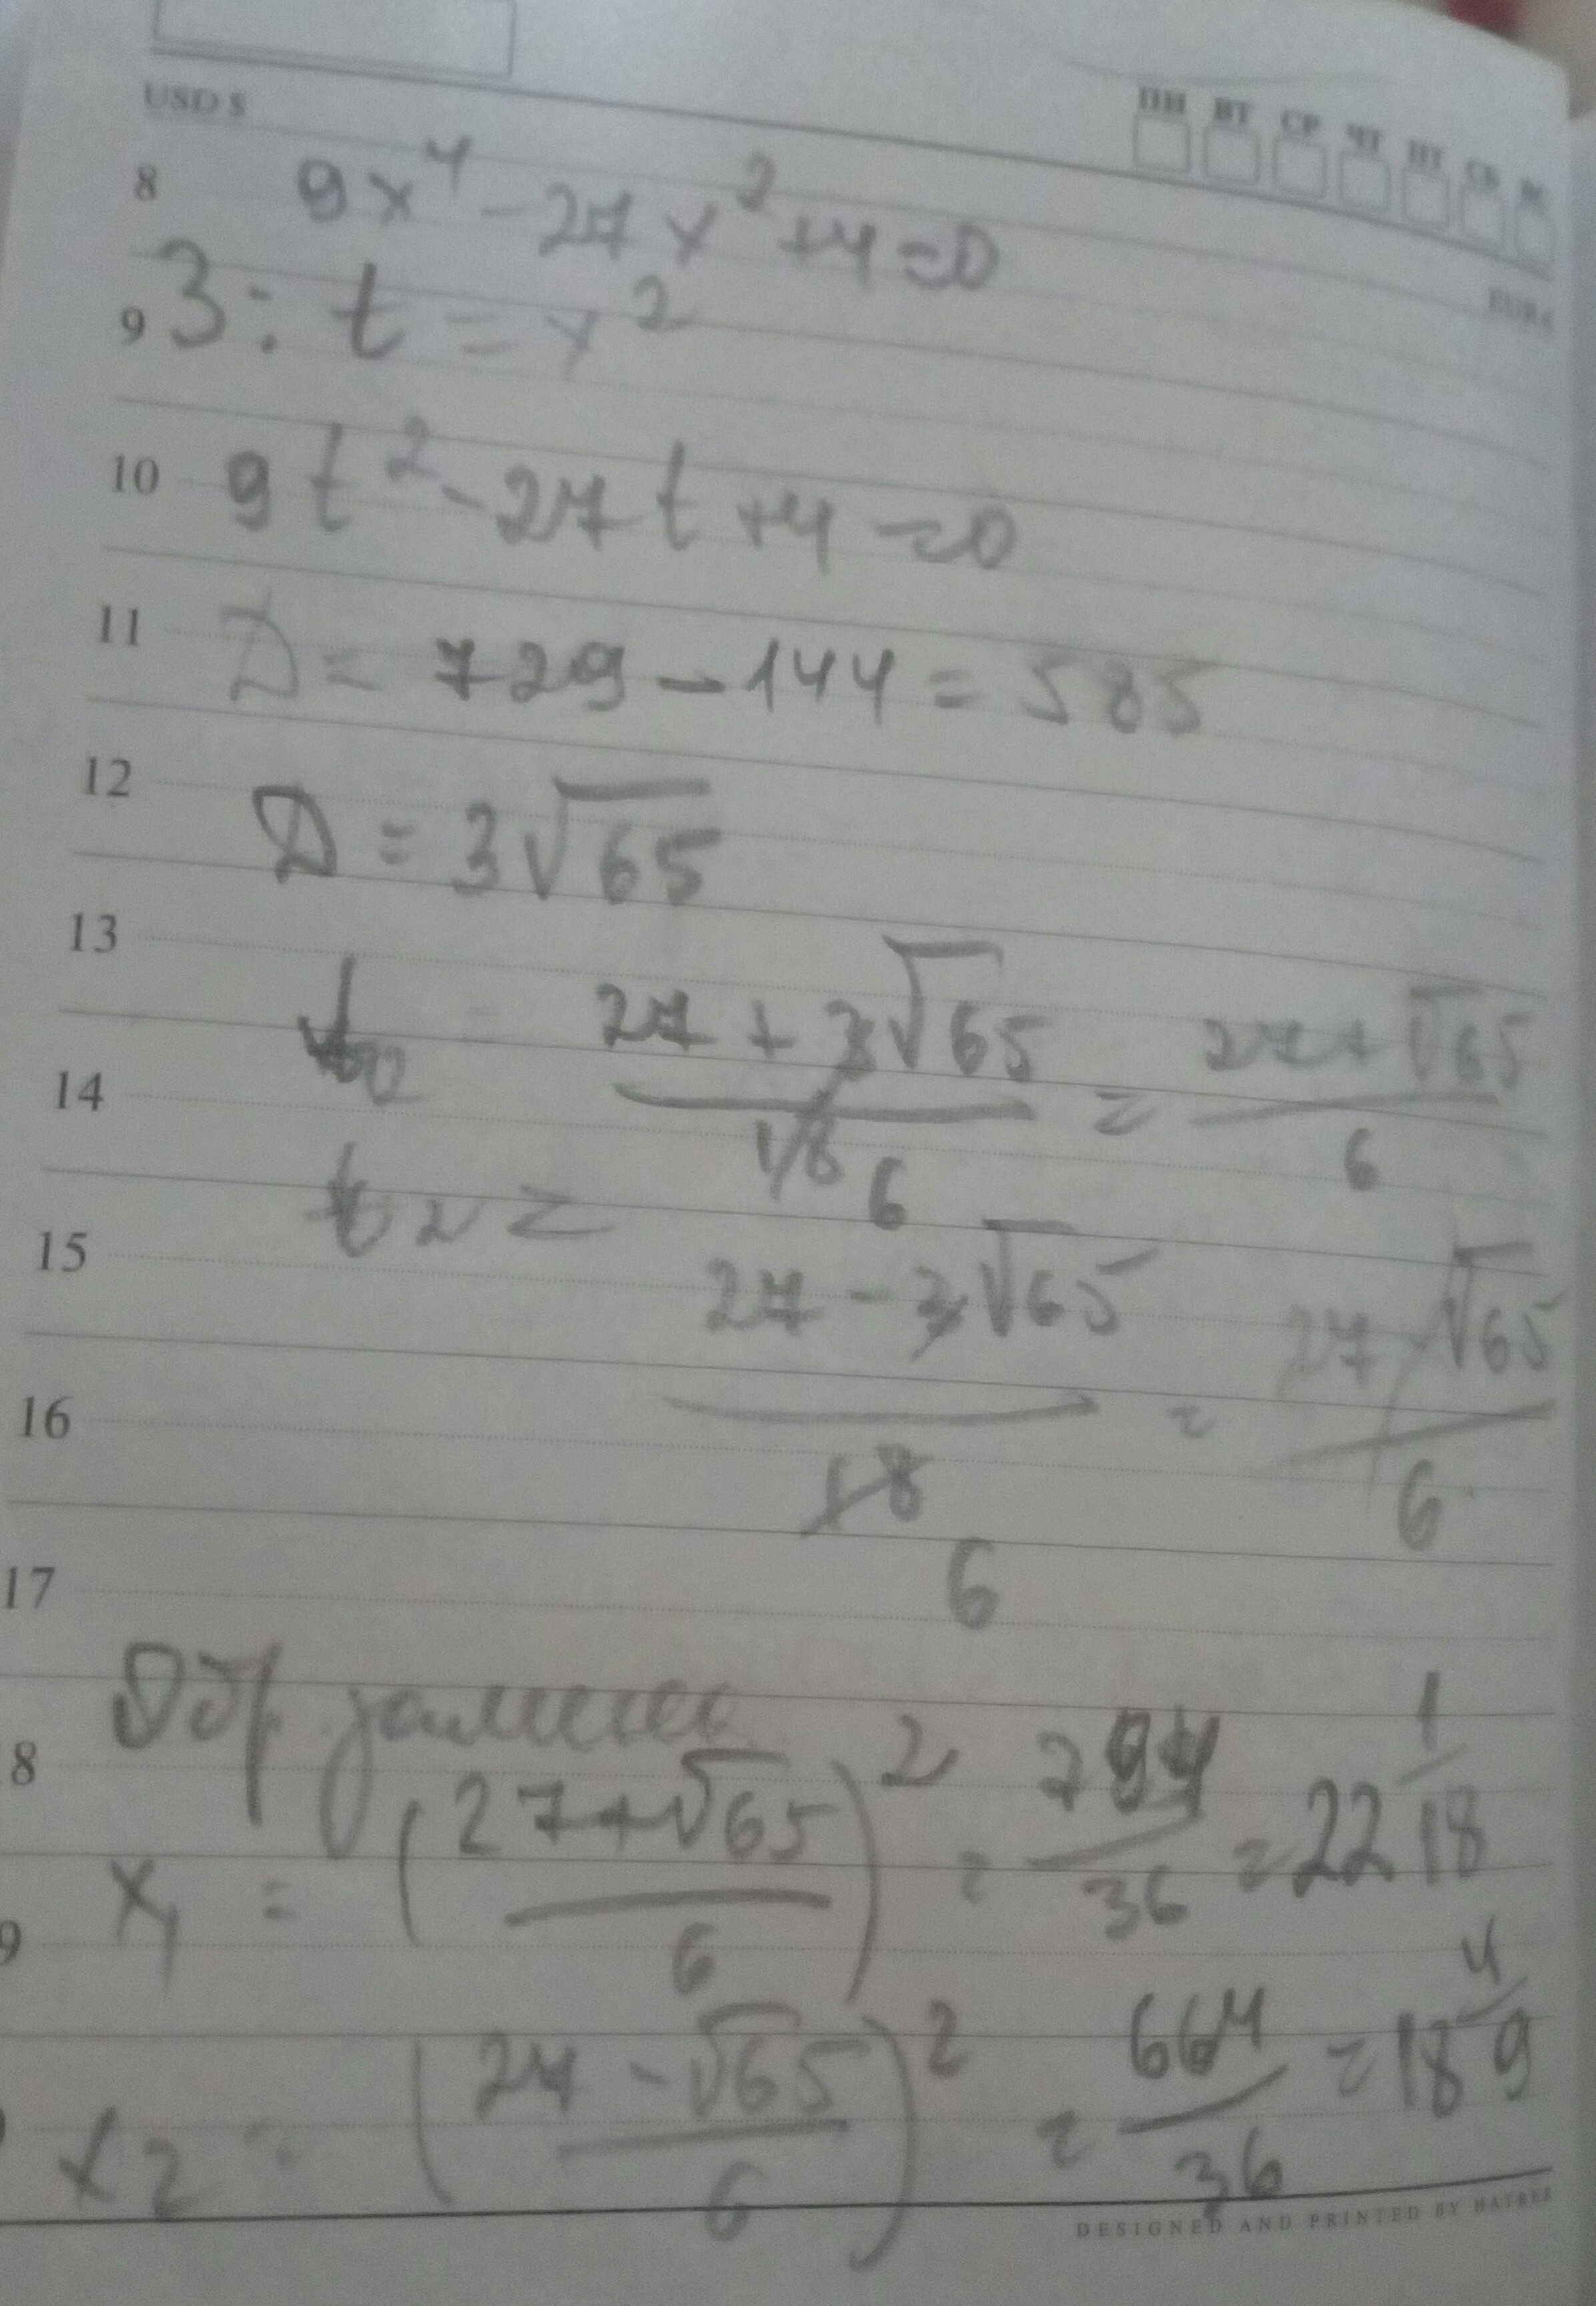 USD $
ПН ВТ СР ЧТ ПТ СБ ВС
EUR €
8 9x⁴ - 27x² + 4 = 0
9 З: t = x²
10 9t² - 27t + 4 = 0
11 D = 729 - 144 = 585
12 D = 3√65
13
14 = (27 + 3√65)/18 6 = (27 + √65)/6
15 t₂ = (27 - 3√65)/18 6 = (27 - √65)/6
16
17
Обр замена
8 x₁ = ((27 + √65)/6)² = 794/36 = 22 1/18
9 x₂ = ((27 - √65)/6)² = 664/36 = 18 4/9
DESIGNED AND PRINTED BY HATBER